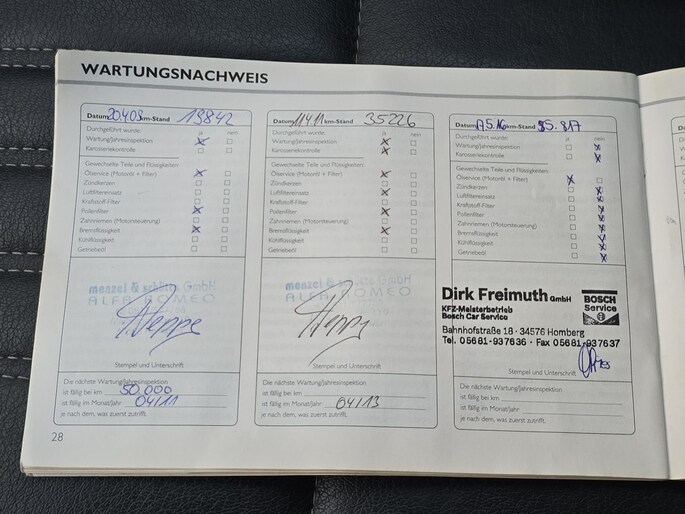 WARTUNGSNACHWEIS
Datum 20.4.09 km-Stand 19842
Durchgeführt wurde ja nein
Wartung/Jahresinspektion
Karosseriekontrolle
Gewechselte Teile und Flüssigkeiten
Ölservice (Motoröl + Filter)
Zündkerzen
Luftfiltereinsatz
Kraftstoff-Filter
Pollenfilter
Zahnriemen (Motorsteuerung)
Bremsflüssigkeit
Kühlflüssigkeit
Getriebeöl
GmbH
ALFA ROMEO
Stempel und Unterschrift
Die nächste Wartung/Jahresinspektion
ist fällig bei km 50.000
ist fällig im Monat/Jahr 04/11
je nach dem, was zuerst zutrifft.
28
Datum 11.4.11 km-Stand 35226
Durchgeführt wurde ja nein
Wartung/Jahresinspektion
Karosseriekontrolle
Gewechselte Teile und Flüssigkeiten
Ölservice (Motoröl + Filter)
Zündkerzen
Luftfiltereinsatz
Kraftstoff-Filter
Pollenfilter
Zahnriemen (Motorsteuerung)
Bremsflüssigkeit
Kühlflüssigkeit
Getriebeöl
GmbH
ALFA ROMEO
Stempel und Unterschrift
Die nächste Wartung/Jahresinspektion
ist fällig bei km
ist fällig im Monat/Jahr 04/13
je nach dem, was zuerst zutrifft.
Datum 17.5.16 km-Stand 55.817
Durchgeführt wurde ja nein
Wartung/Jahresinspektion
Karosseriekontrolle
Gewechselte Teile und Flüssigkeiten
Ölservice (Motoröl + Filter)
Zündkerzen
Luftfiltereinsatz
Kraftstoff-Filter
Pollenfilter
Zahnriemen (Motorsteuerung)
Bremsflüssigkeit
Kühlflüssigkeit
Getriebeöl
Dirk Freimuth GmbH
KFZ-Meisterbetrieb
Bosch Car Service
BOSCH
Service
Bahnhofstraße 18 · 34576 Homberg
Tel. 05681-937636 · Fax 05681-937637
Stempel und Unterschrift
Die nächste Wartung/Jahresinspektion
ist fällig bei km
ist fällig im Monat/Jahr
je nach dem, was zuerst zutrifft.